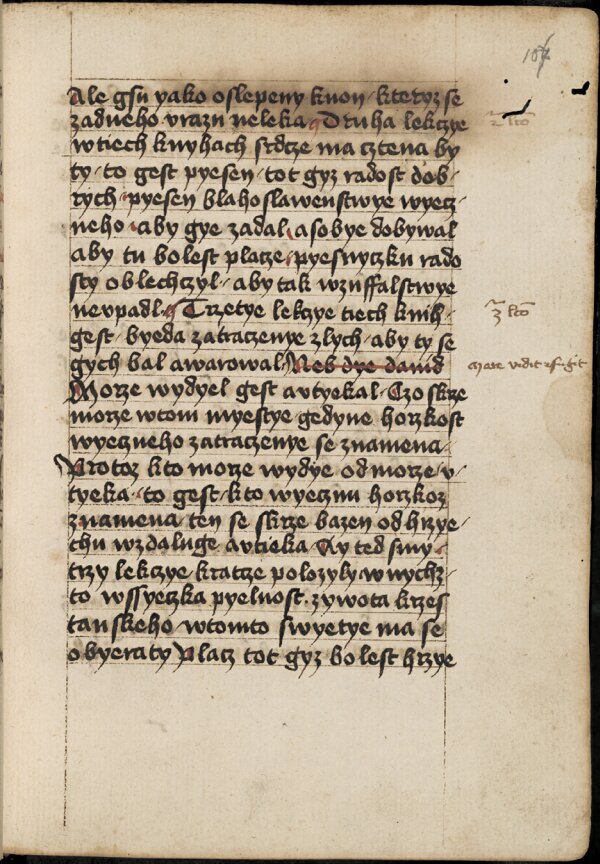 187
Ale gsu yako oslepeny kuon · kteryz se
zadneho vrazu neleka Druha lekczye
wtiech knyhach srdcze ma cztena by
ty · to gest pyesen · tot gyz radost dob
rych · pyesen blahoslawenstwye wyecz
neho · aby gye zadal · asobye dobywal
aby tu bolest placze · pyesnyczku rado
sty oblechczyl · aby tak wzuffalstwye
nevpadl · Trzetye lekczye tiech knih
gest · byeda zatraczenye zlych · aby ty se
gych bal awarowal · Neb dye dauid
Morze wydyel gest avtyekal · Czo skrze
morze wtom myestye gedyne horzkost
wyeczneho zatraczenye se znamena ·
Protoz kto morze wydye od morze v
tyeka · to gest · kto wyecznu horzkoz
znamena ten se skrze bazen od hrzye
chu wzdaluge avtieka · Ay ted smy
trzy lekczye kratcze polozyly wnychz
to wssyeczka pyelnost · zywota krzes
tanskeho wtomto swyetye ma se
obyeraty Placz tot gyz bolest hrzye
2 lctō
3 lctō
Mare vidit ⁊ fugit